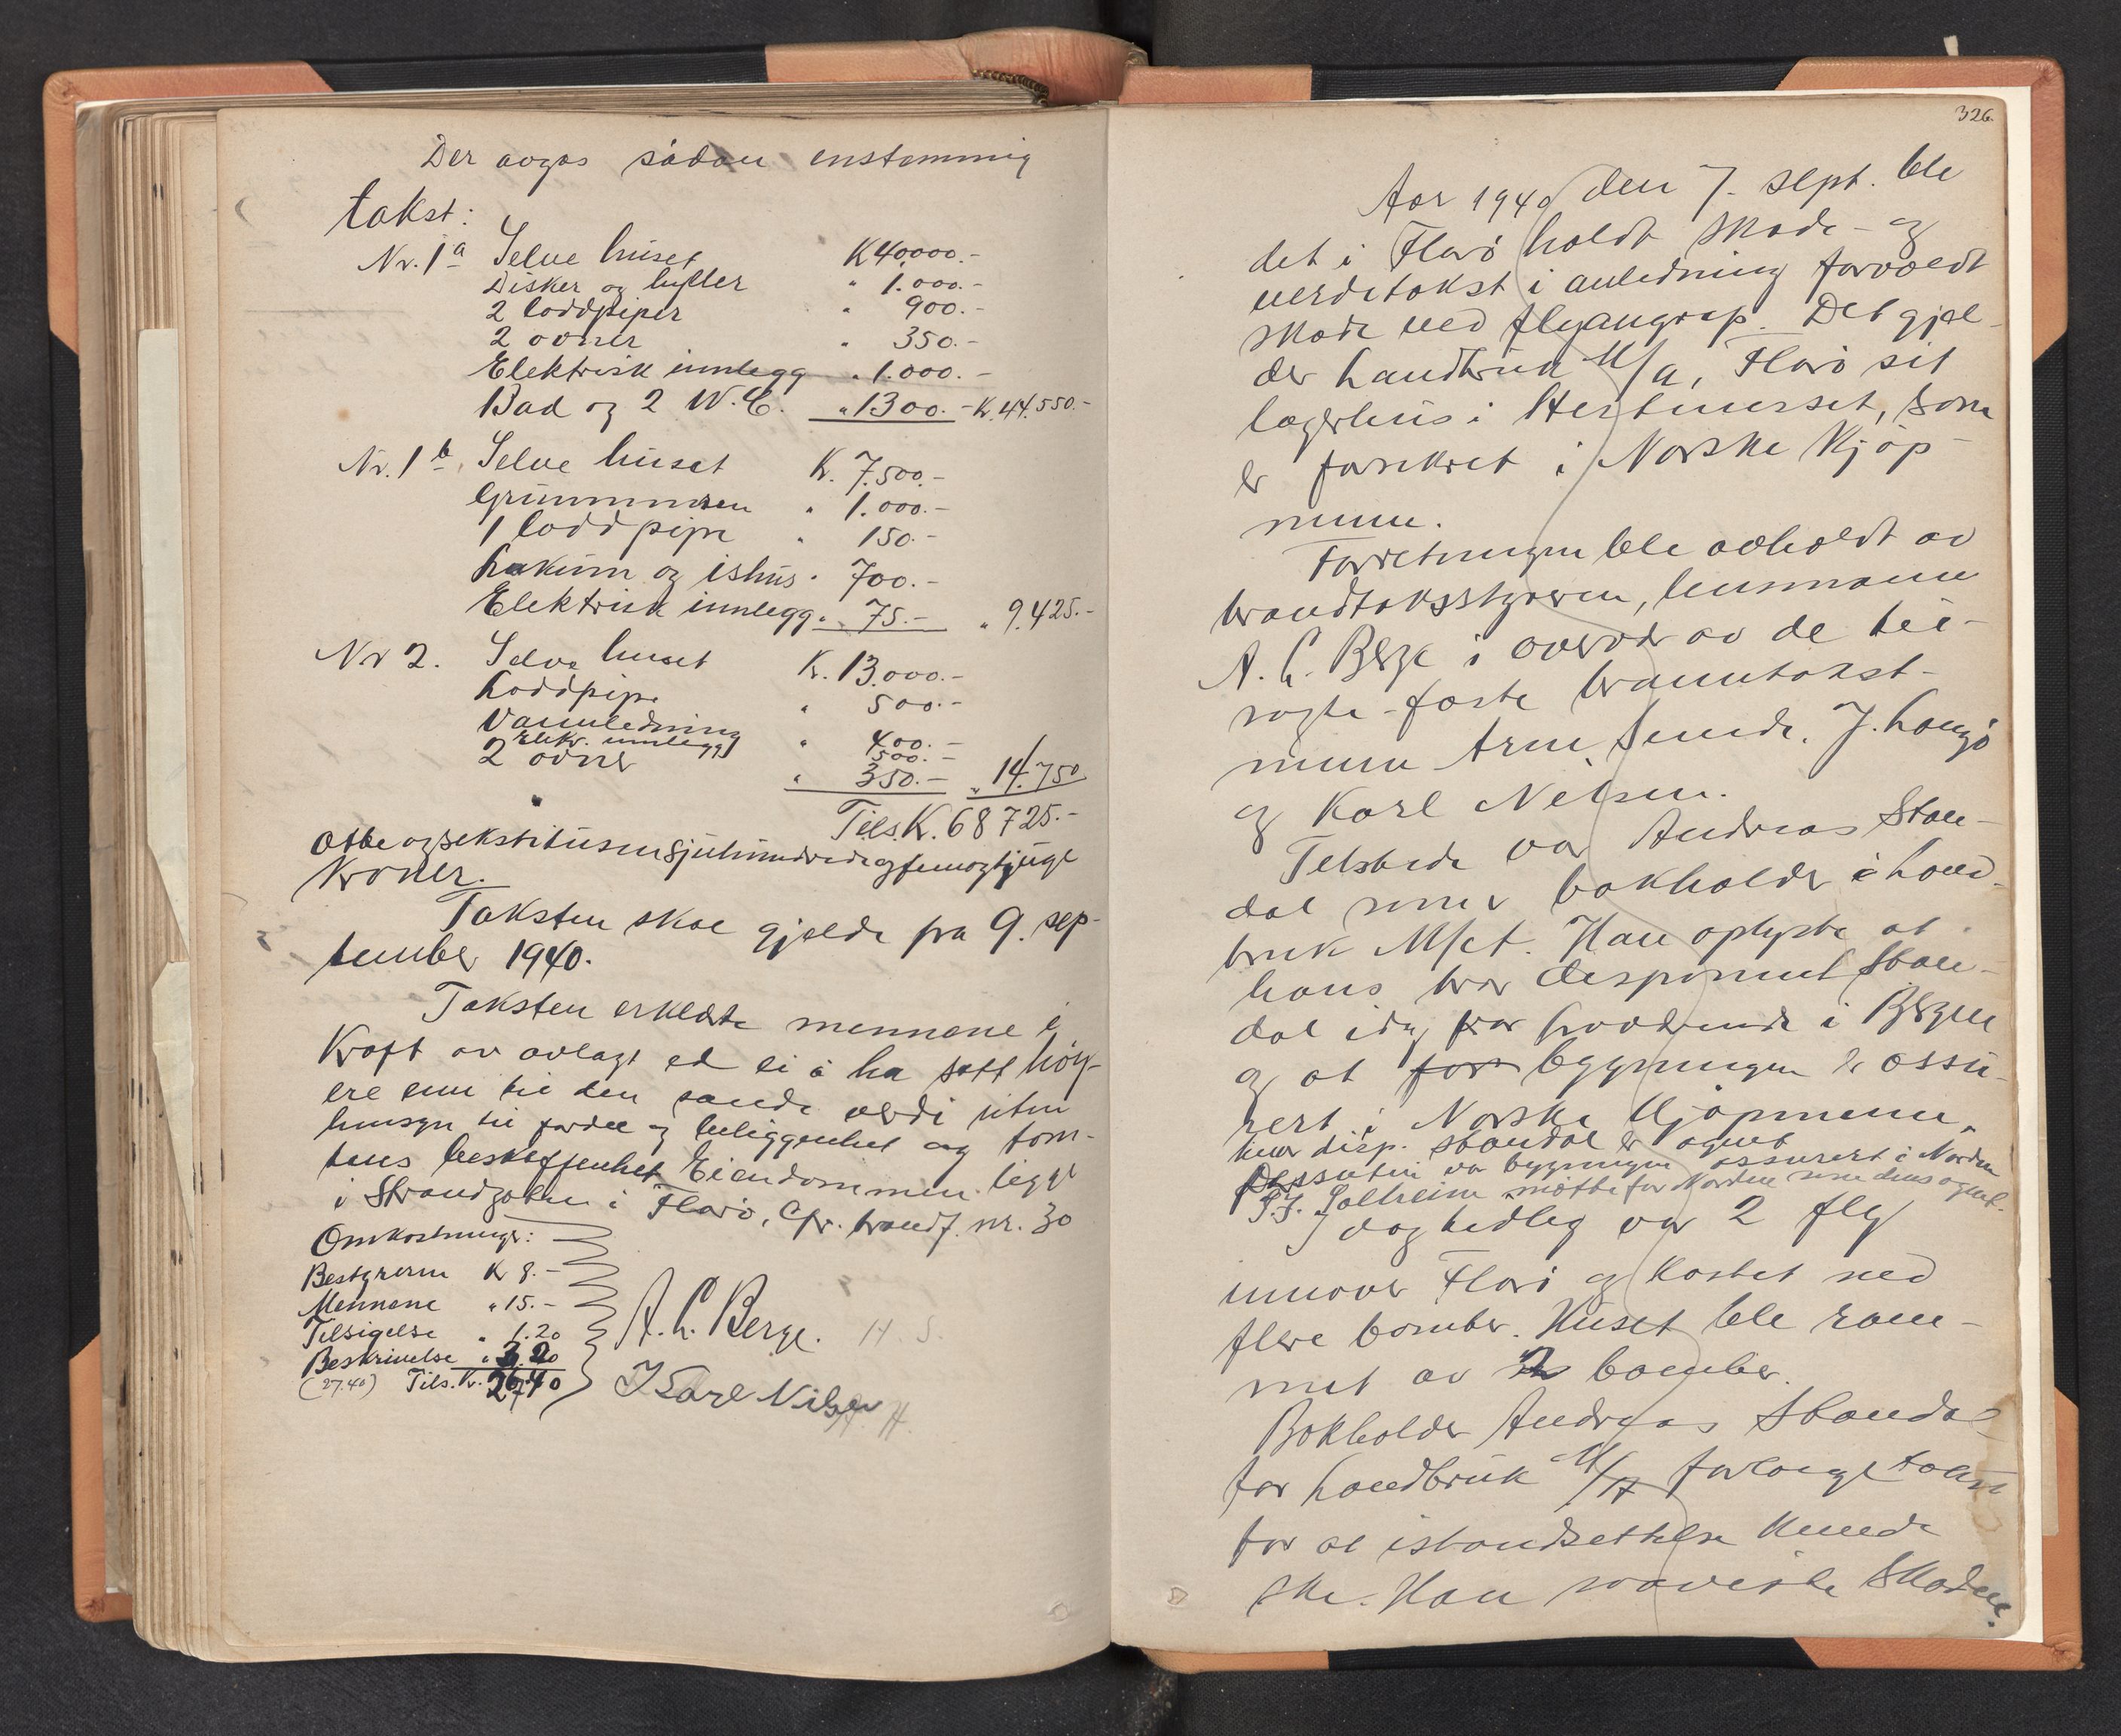 Der avgas sådan enstemmig
takst:
Nr. 1a Selve huset K 40000.-
Disker og hyller " 1.000.-
2 loddpiper " 900.-
2 ovner " 350.-
Elektrisk innlegg " 1.000.-
Bad og 2 W.C. " 1300.- K. 44.550.-
Nr. 1b. Selve huset K. 7.500.-
Grunnmuren " 1.000.-
1 loddpipe " 150.-
Lokum og ishus " 700.-
Elektrisk innlegg " 75.- " 9.425.-
Nr 2. Selve huset K. 13.000.-
Loddpipe " 500.-
Vannledning " 400.-
Elektr. innlegg 500.-
2 ovner " 350.- " 14.750
Tils. K. 68725.-
Otte og sekstitusensjuhundredeogfemogtjuge
Kroner.
Taksten skal gjelde fra 9. sep-
tember 1940.
Taksten erklærte mennene i
Kraft av avlagt ed ei å ha satt höy-
ere enn til den sande verdi uten
hensyn til fordel og beliggenhet og tom-
tens beskaffenhet. Eiendommen ligger
i Strandgaten i Florö, Cfr. brandf. nr. 30
Omkostninger:
Bestyreren K 8.-
Mennene " 15.-
Tilsigelse " 1.20
Beskrivelse " 3.20
(27.40) Tils. Kr. 27.40
A. L. Berge. H. S.
Karl Nilsen H.
326.
Aar 1940 den 7. sept. ble
det i Florö holdt skade- og
verditakst i anledning forvoldt
skade ved flyangrep. Det gjel-
der Landbruk A/a, Florö sit
lagerhus i Hestneset, som
er forsikret i Norske Kjöp-
menn.
Forretningen ble avholdt av
brandtakstbestyreren, lensmann
A. L. Berge i overvær av de til-
sagte faste branntakst-
menn Arne Sunde, J. Langö
og Karl Nilsen.
Tilstede var Andreas Stan-
dal som bokholder i Land-
bruk A/st. Han oplyste at
hans bror disponent Stan-
dal idag var fraværende i Bergen
og at for bygningen er assu-
rert i Norske Kjöpmenn,
hvor disp. Standal er agent
Dessuten var bygningen assurert i Norden
P.J. Solheim mötte for Norden som dens agent.
I dag tidlig var 2 fly
innover Florö og kastet ned
flere bomber. Huset ble ram-
met av 2 bomber.
Bokholder Andreas Standal
for Landbruk A/A forlangte takst
for at istandsettelse kunde
ske. Han påviste Skaden.